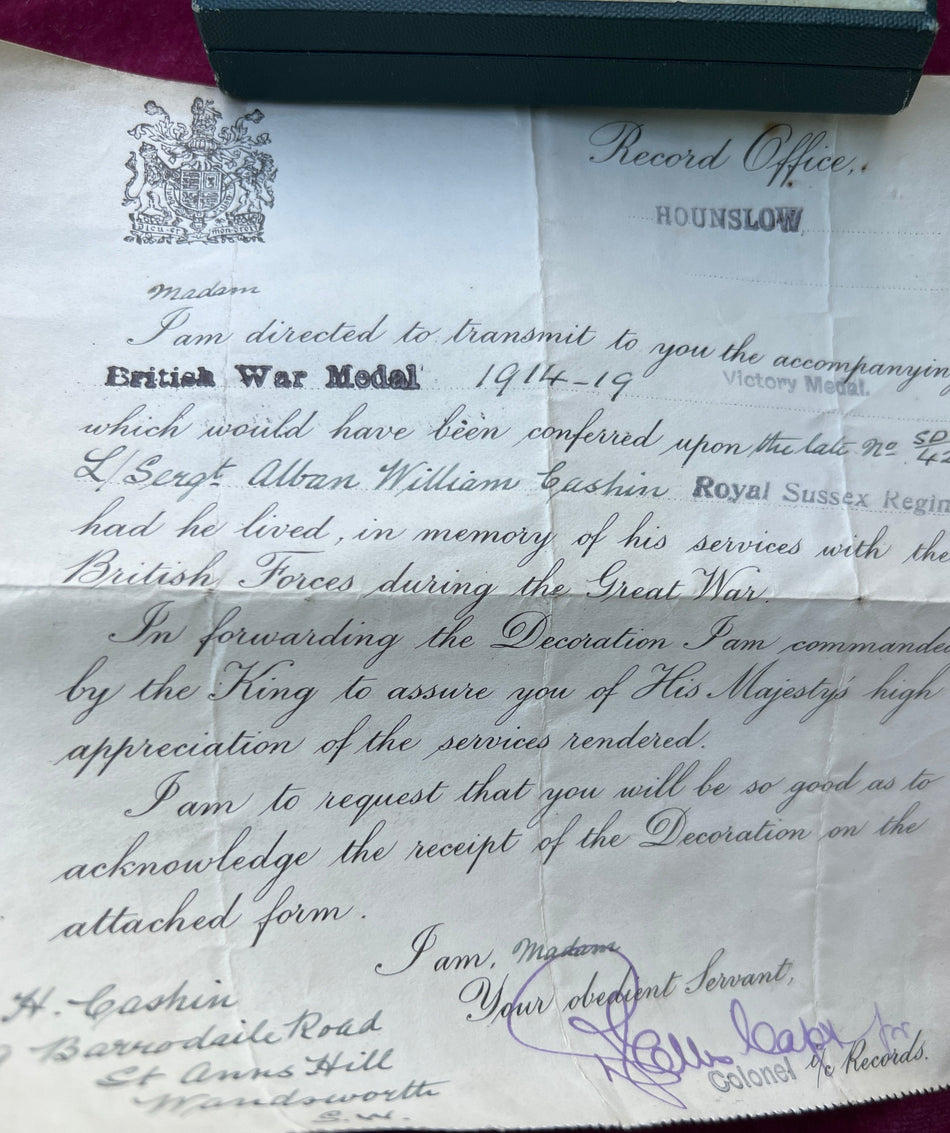 Record Office,
HOUNSLOW
Dieu et mon droit
Madam
I am directed to transmit to you the accompanying
British War Medal 1914-19 Victory Medal.
which would have been conferred upon the late No SD
L/Sergt Alban William Cashin Royal Sussex Regim
had he lived, in memory of his services with the
British Forces during the Great War.
In forwarding the Decoration I am commanded
by the King to assure you of His Majesty's high
appreciation of the services rendered.
I am to request that you will be so good as to
acknowledge the receipt of the Decoration on the
attached form.
I am, Madam
Your obedient Servant,
Capt for
Colonel i/c Records.
H. Cashin
Barrodaile Road
St Anns Hill
Wandsworth
S.W.